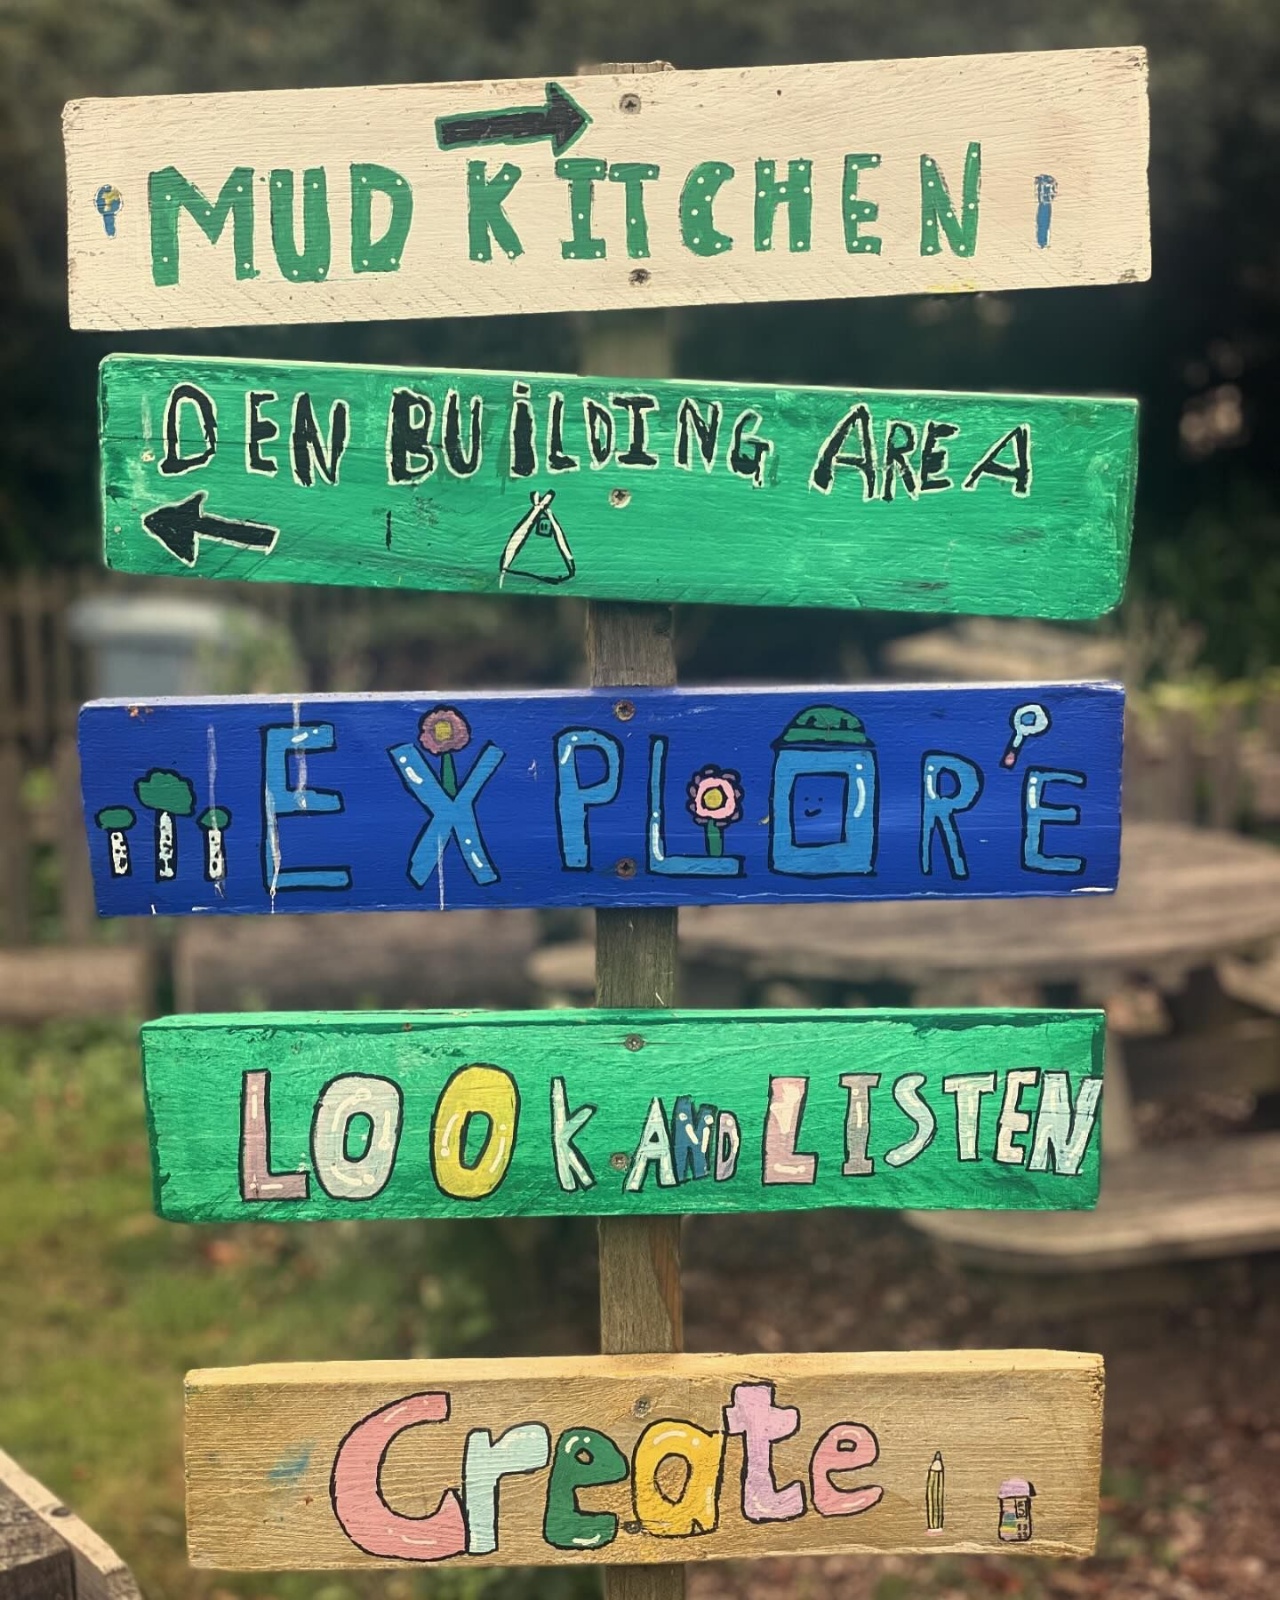 MUD KITCHEN
DEN BUiLDING AREA
EXPLORE
LOOK AND LISTEN
Create